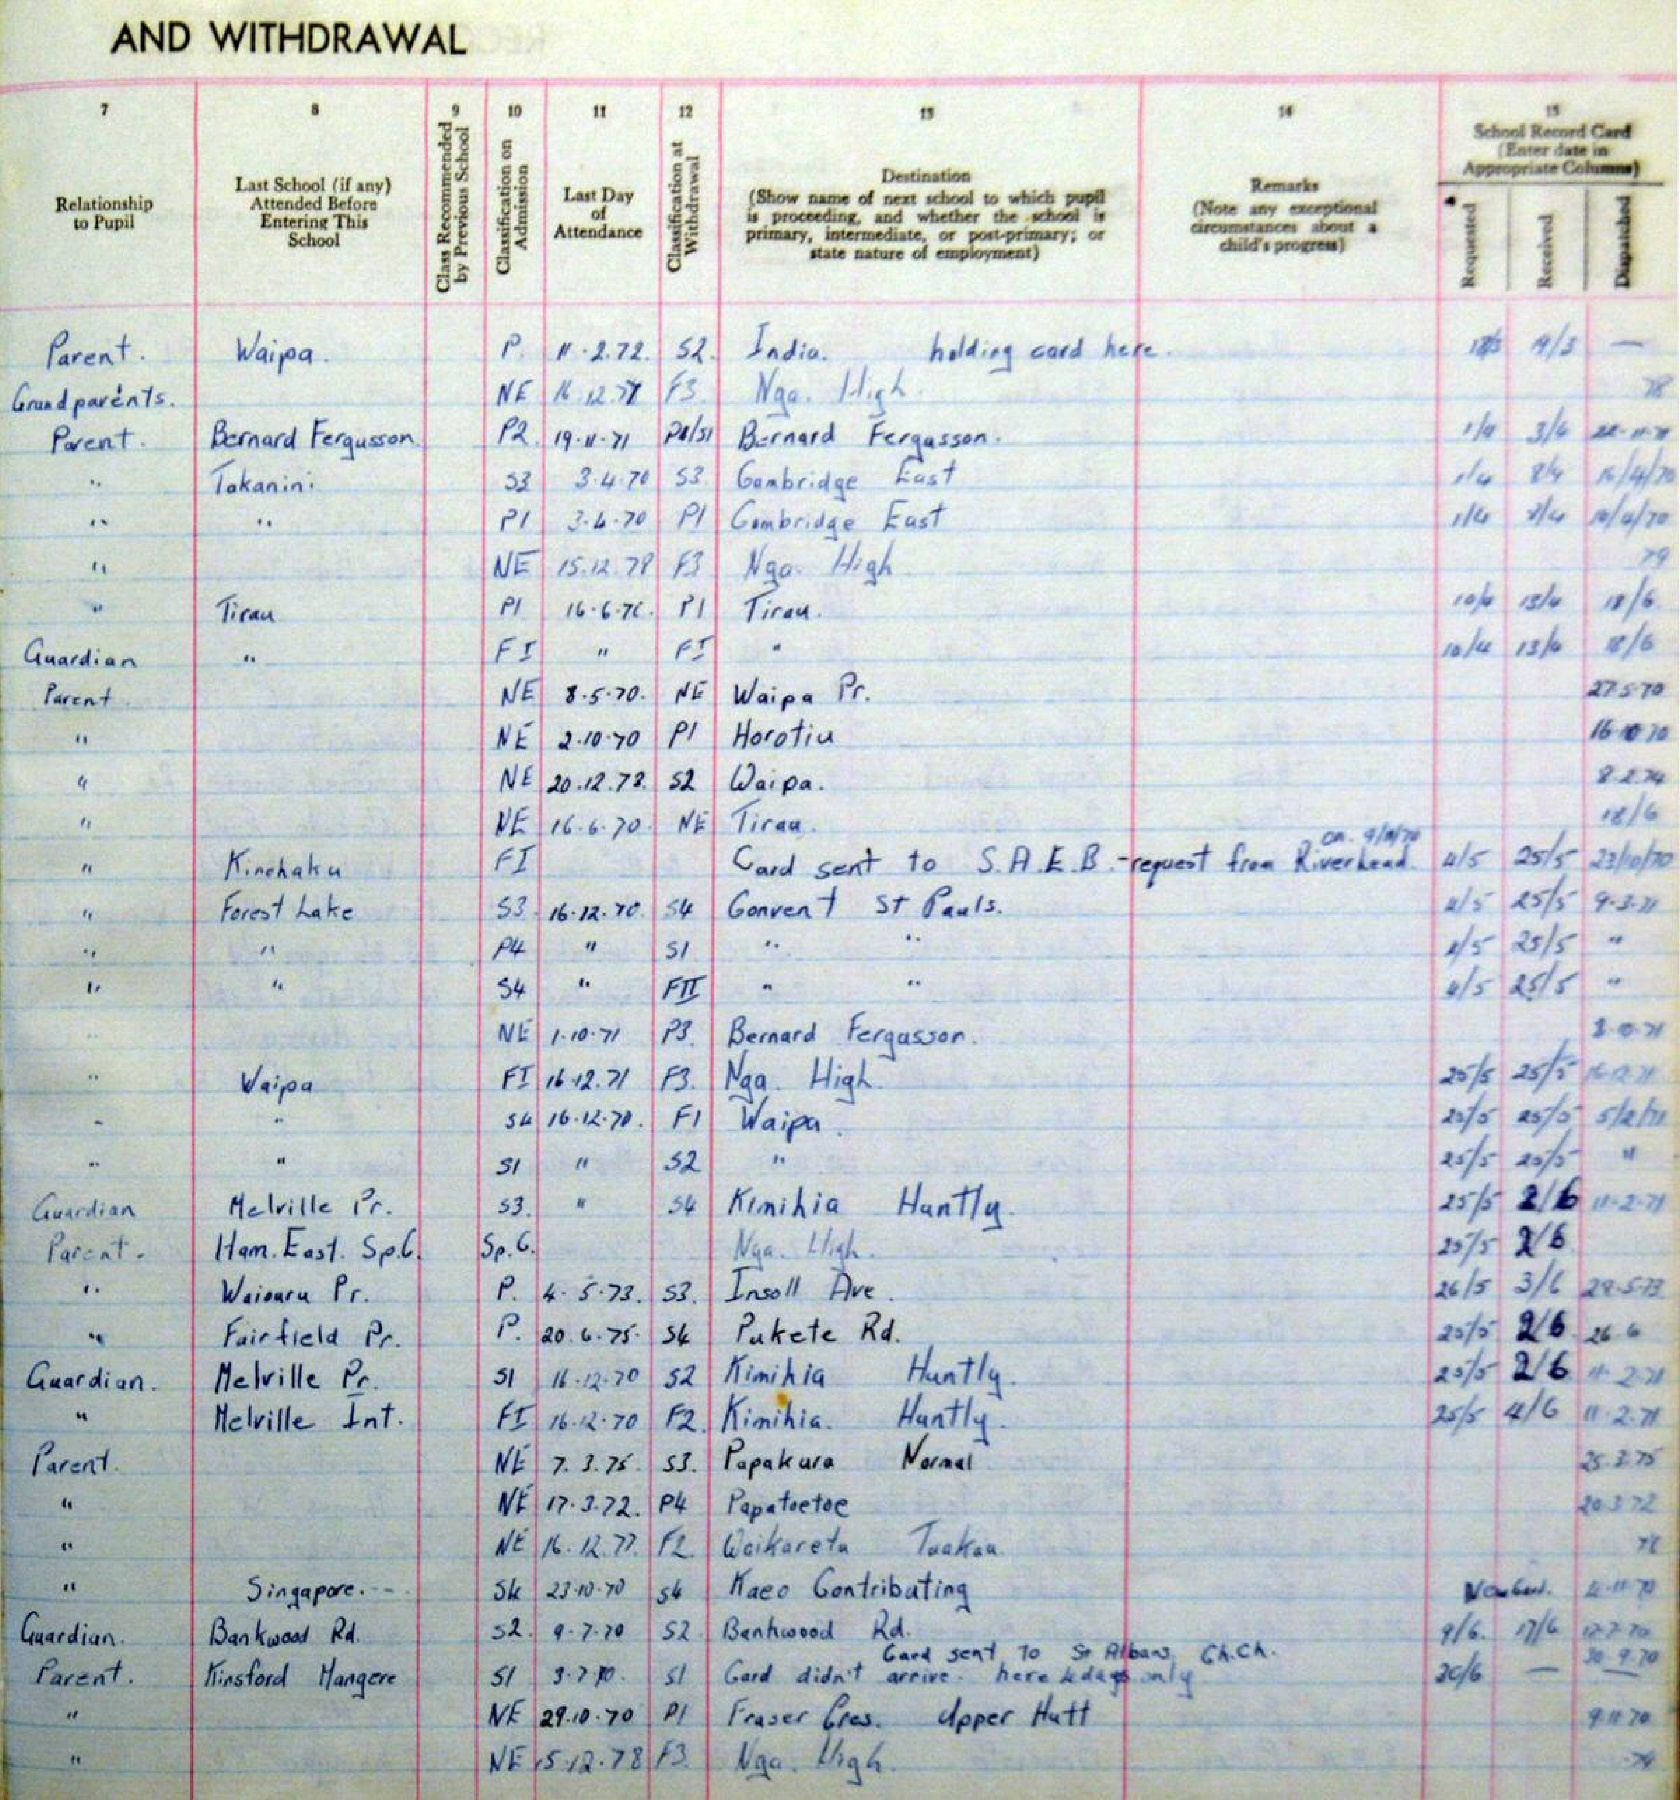 AND WITHDRAWAL
7 8 9 10 11 12 13 14 15
Relationship to Pupil
Last School (if any) Attended Before Entering This School
Class Recommended by Previous School
Classification on Admission
Last Day of Attendance
Classification at Withdrawal
Destination (Show name of next school to which pupil is proceeding, and whether the school is primary, intermediate, or post-primary; or state nature of employment)
Remarks (Note any exceptional circumstances about a child's progress)
School Record Card (Enter date in Appropriate Columns)
Requested Received Dispatched
Parent. Waipa. P. 11.2.72. S2. India. holding card here. 19/3 —
Grandparents. NE F3. Nga. High. 78
Parent. Bernard Fergusson P2. 19.11.71 Bernard Fergusson. 1/4 3/4
" Takanini S3 3.4.70 S3. Cambridge East 1/4 8/4 16/4/70
" " P1 3.4.70 P1 Cambridge East 1/4 10/4/70
" NE 15.12.78 F3 Nga. High. 79
" Tirau P1 P1 Tirau. 10/4 13/4 18/6
Guardian " FI " FI " 10/4 13/4 18/6
Parent NE 8.5.70. NE Waipa Pr. 27.5.70
" NE 2.10.70 P1 Horotiu 16.10.70
" NE S2 Waipa. 8.2.74
" NE 16.6.70. NE Tirau. 18/6
on. 9/9/70
" Kinohaku FI Card sent to S.A.E.B. - request from Riverhead. 4/5 25/5 23/10/70
" Forest Lake S3. 16.12.70. S4 Convent St Pauls. 4/5 25/5 9.3.71
" " P4 " S1 " " 4/5 25/5 "
" " S4 " FII " " 4/5 25/5 "
" NE 1.10.71 P3. Bernard Fergusson. 8.10.71
" Waipa FI 16.12.71 F3. Nga. High. 25/5 25/5
" " S4 16.12.70. F1 Waipa. 25/5 25/5 5/2/71
" " S1 " S2 " 25/5 25/5 "
Guardian Melville Pr. S3. " S4 Kimihia Huntly. 25/5 2/6 11.2.71
Parent. Ham. East. Sp.C. Sp.C. Nga. High. 25/5 2/6
" Waiouru Pr. P. 4.5.73. S3. Insoll Ave. 26/5 3/6 29.5.73
" Fairfield Pr. P. 20.6.75. S4 Pukete Rd. 25/5 2/6. 26.6
Guardian. Melville Pr. S1 16.12.70 S2 Kimihia Huntly. 25/5 2/6 11.2.71
" Melville Int. FI 16.12.70 F2. Kimihia. Huntly. 25/5 4/6 11.2.71
Parent. NE 7.3.75. S3. Papakura Normal 25.3.75
" NE 17.3.72. P4 Papatoetoe 20.3.72
" NE 16.12.77. F2. Waikaretu Tuakau. 78
" Singapore. S4 23.10.70 S4 Kaeo Contributing
Guardian. Bankwood Rd. S2. 9.7.70 S2. Bankwood Rd. 9/6. 17/6
Card sent to St Albans, Ch.Ch. 30.9.70
Parent. Kinsford Mangere S1 3.7.70. S1 Card didn't arrive. here 4 days only 30/6 —
" NE 29.10.70 P1 Fraser Cres. Upper Hutt 9.11.70
" NE 15.12.78 F3. Nga. High.